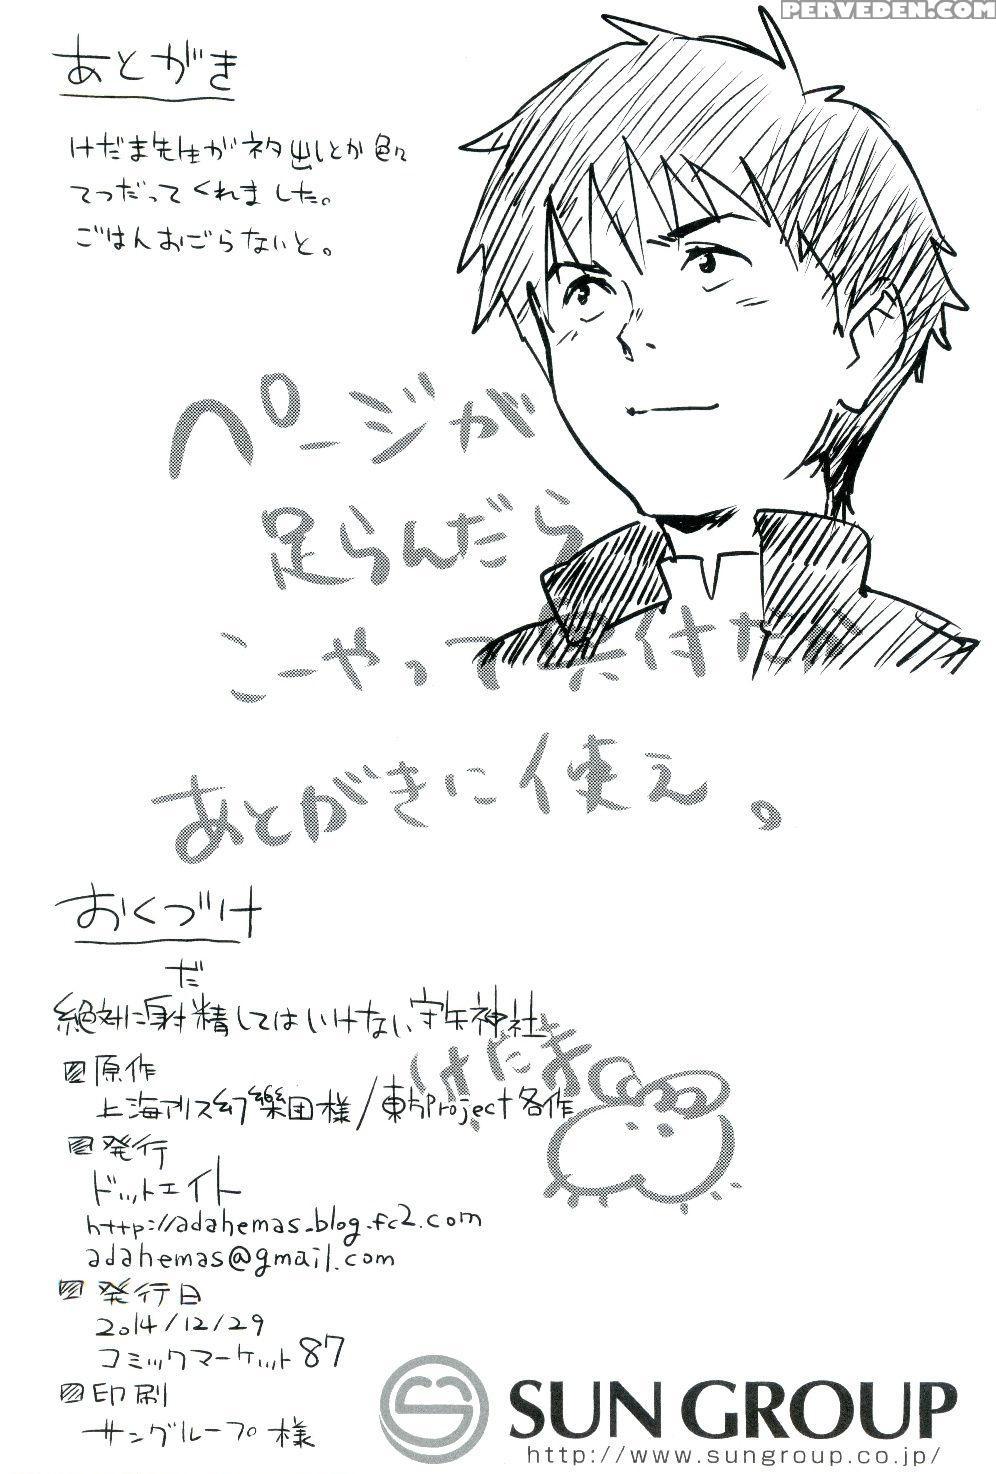 PERVEDEN.COM
あとがき
けだま先生がネタ出しとか色々
てつだってくれました。
ごはんおごらないと。
ページが
足らんだら
こーやって 付
あとがきに使え。
おくづけ
だ
絶対に射精してはいけない守矢神社
けだま
原作
上海アリス幻樂団様/東方Project各作
発行
ドットエイト
http://adahemas.blog.fc2.com
adahemas@gmail.com
発行日
2014/12/29
コミックマーケット87
印刷
サングループ様
SUN GROUP
http://www.sungroup.co.jp/